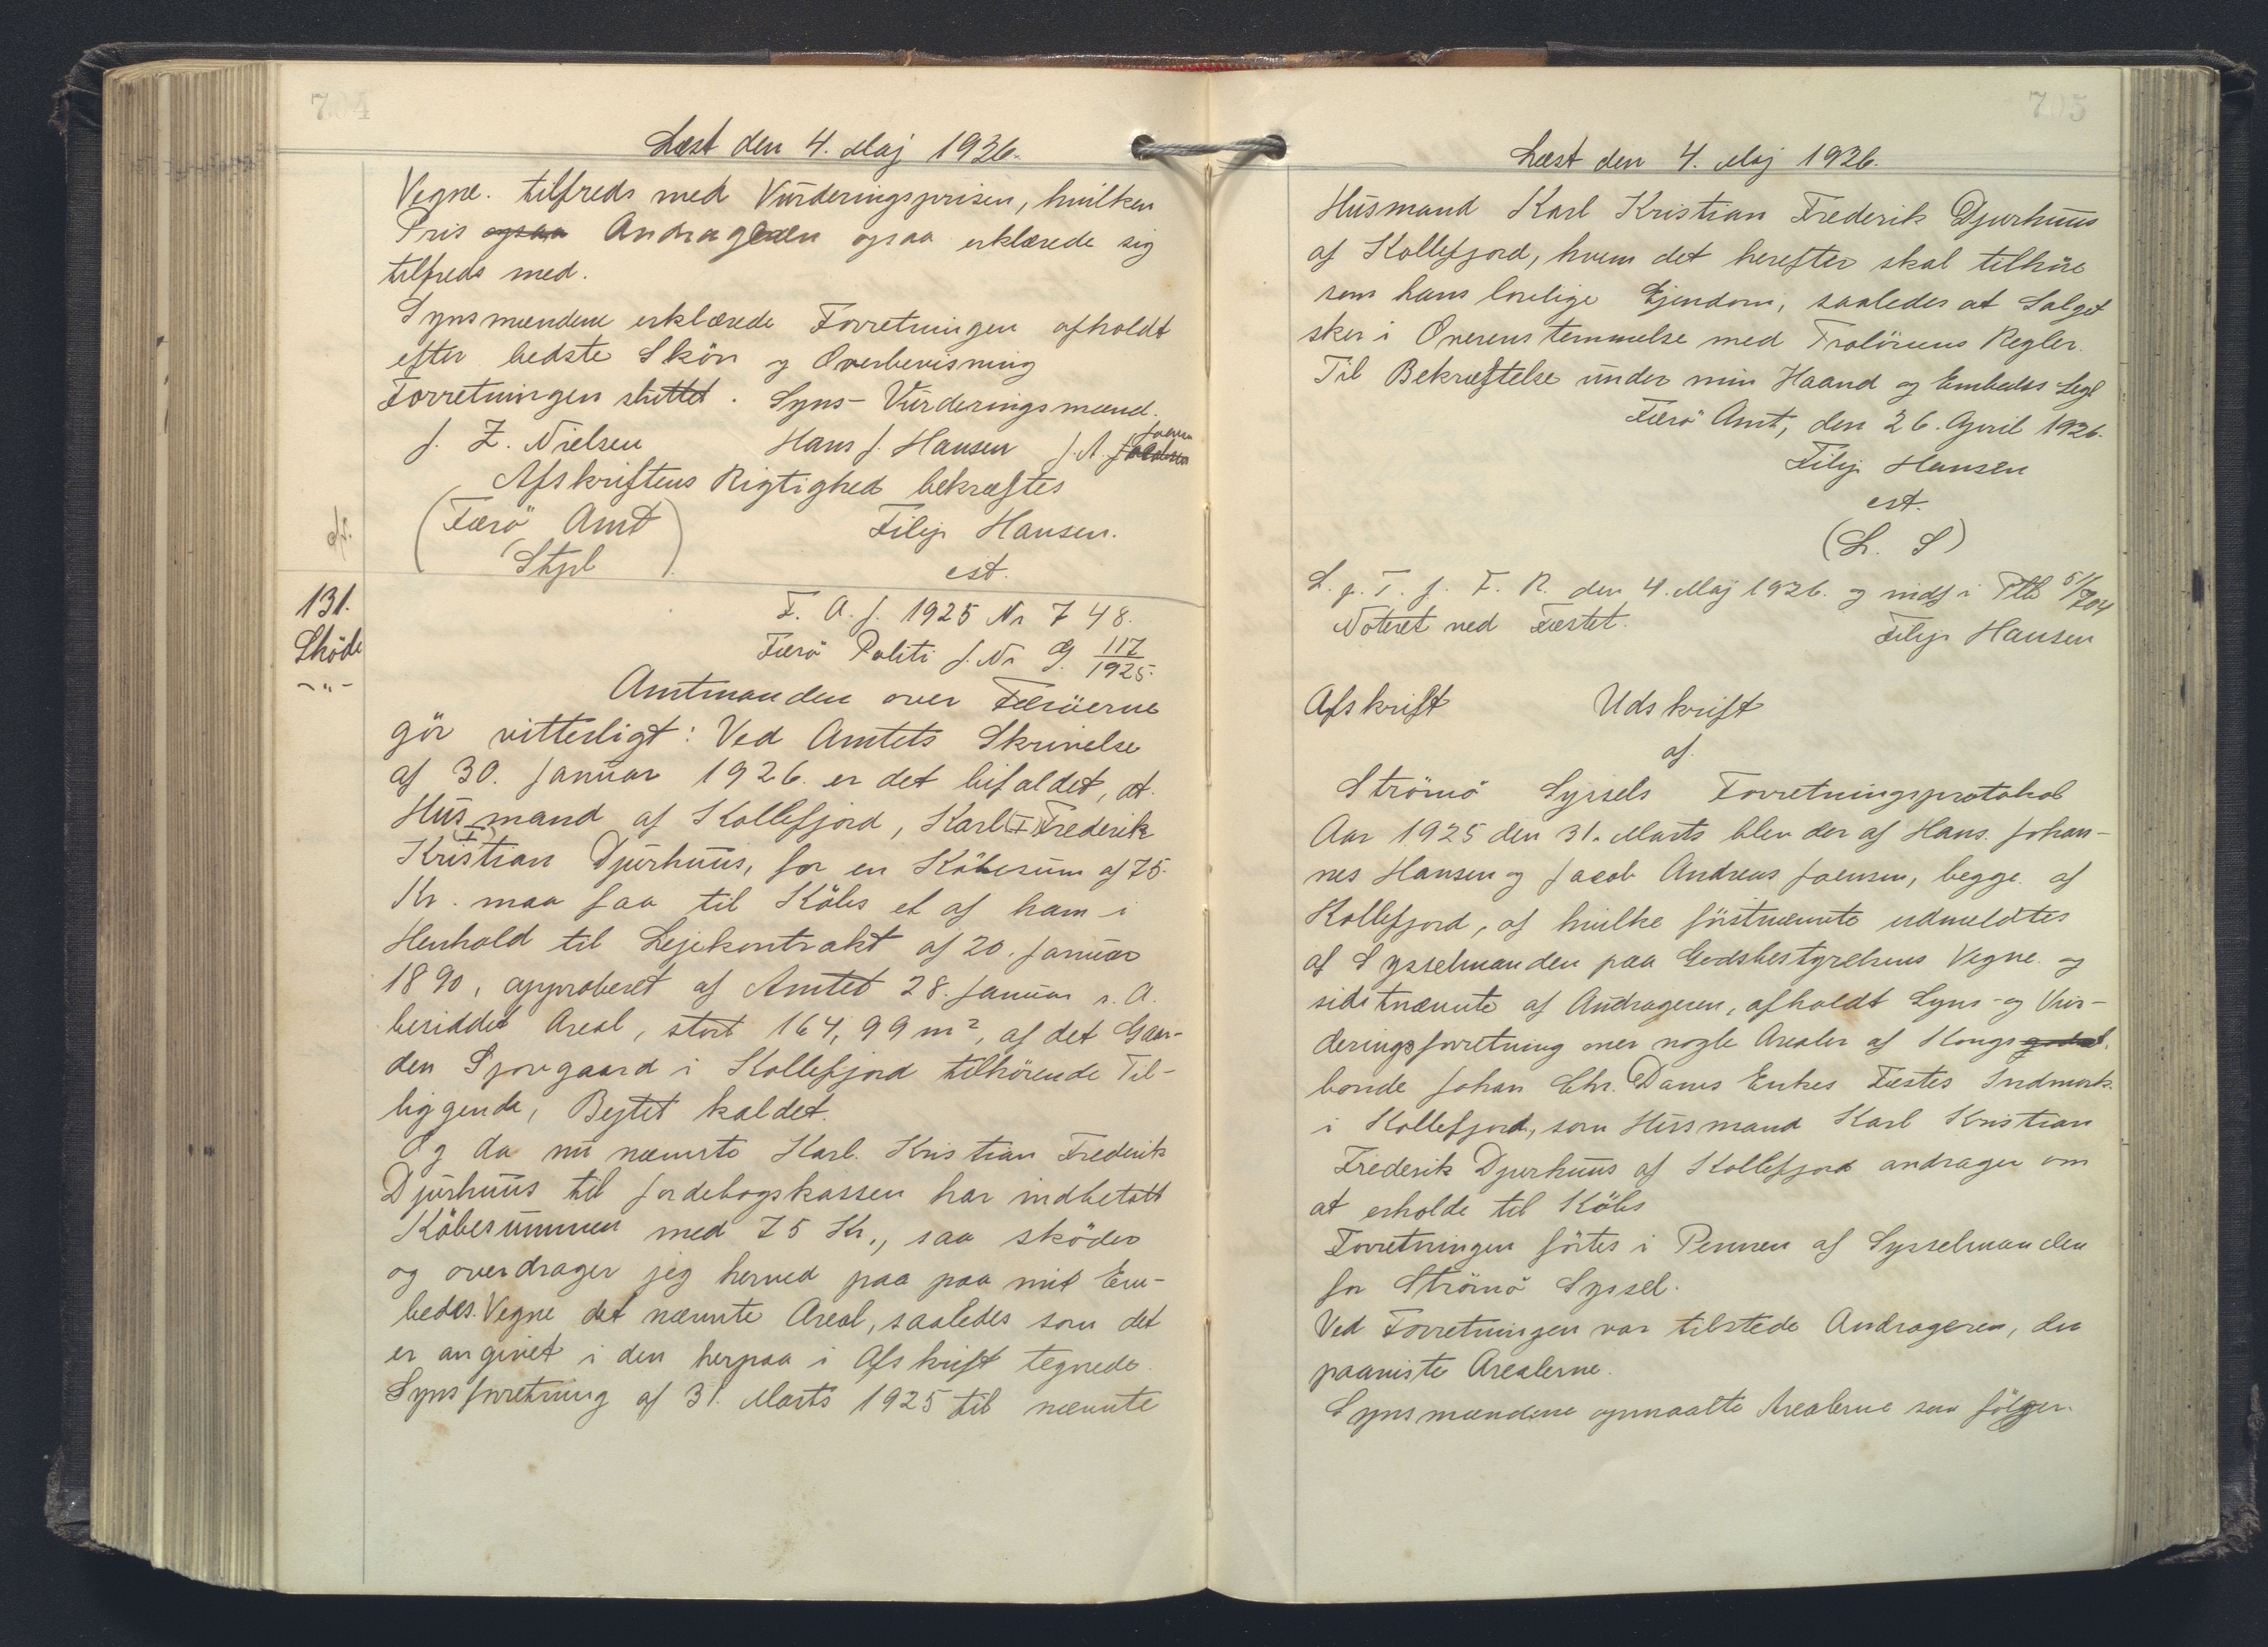 704
Læst den 4. Maj 1926.
Vegne tilfreds med Vurderingsprisen, hvilken
Pris ogsaa Andrageren ogsaa erklærede sig
tilfreds med.
Synsmændene erklærede Forretningen afholdt
efter bedste Skön og Overbevisning
Forretningen sluttet. Syns- Vurderingsmænd.
J. Z. Nielsen Hans J. Hansen J. A. Joensen
Afskriftens Rigtighed bekræftes
(Færö Amt) Filip Hansen.
Stpl est.
131.
Sköde
-"-
F. A. J. 1925 Nr 748.
Færö Politi J. Nr G. 117/1925.
Amtmanden over Færöerne
gör vitterligt: Ved Amtets Skrivelse
af 30. Januar 1926 er det bifaldet, at
Husmand af Kollefjord, Karl (I) Frederik
(I) Kristian Djurhuus, for en Köbesum af 75
Kr. maa faa til Köbs et af ham i
Henhold til Lejekontrakt af 20. Januar
1890, approberet af Amtet 28. Januar s. A.
besiddet Areal, stort 164,99 m², af det Gaar-
den Sjovgaard i Kollefjord tilhörende Til-
liggende, Bejtet kaldet.
Og da nu nævnte Karl Kristian Frederik
Djurhuus til Jordebogskassen har indbetalt
Köbesummen med 75 Kr., saa sköder
og overdrager jeg herved paa paa mit Em-
bedes Vegne det nævnte Areal, saaledes som det
er angivet i den herpaa i Afskrift tegnede
Synsforretning af 31. Marts 1925 til nævnte
705
Læst den 4. Maj 1926.
Husmand Karl Kristian Frederik Djurhuus
af Kollefjord, hvem det herefter skal tilhöre
som hans lovlige Ejendom, saaledes at Salget
sker i Overensstemmelse med Frolörens Regler.
Til Bekræftelse under min Haand og Embedes Segl
Færö Amt, den 26. April 1926.
Filip Hansen
est.
(L. S)
L. p. T. f. F. R. den 4. Maj 1926. og indf i Ptk 51/704
Noteret ved Fæstet.
Filip Hansen
Afskrift Udskrift
af
Strömö Syssels Forretningsprotokol
Aar 1925 den 31. Marts blev der af Hans Johan-
nes Hansen og Jacob Andreas Joensen, begge af
Kollefjord, af hvilke förstnævnte udmeldtes
af Sysselmanden paa Godsbestyrelsens Vegne og
sidstnævnte af Andrageren, afholdt Syns- og Vur-
deringsforretning over nogle Arealer af Kongsgodset
bonde Johan Chr. Dams Enkes Fæstes Indmark
i Kollefjord, som Husmand Karl Kristian
Frederik Djurhuus af Kollefjord andrager om
at erholde til Köbs
Forretningen förtes i Pennen af Sysselmanden
for Strömö Syssel.
Ved Forretningen var tilstede Andrageren, der
paaviste Arealerne.
Synsmændene opmaalte Arealerne som fölger.